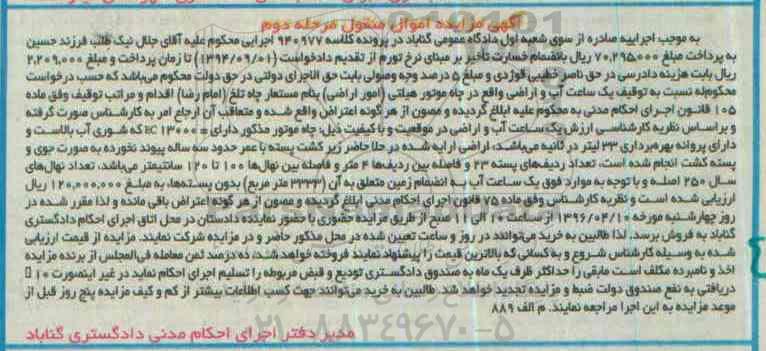 آگهی مزایده اموال منقول مرحله دوم
به موجب اجراییه صادره از سوی شعبه اول دادگاه عمومی گناباد در پرونده کلاسه ۹۴۰۹۷۷ اجرایی محکوم علیه آقای جلال نیک طلب فرزند حسین
به پرداخت مبلغ ۷۰,۲۹۵,۰۰۰ ریال بانضمام خسارت تأخیر بر مبنای نرخ تورم از تقدیم دادخواست (۱۳۹۴/۰۹/۰۱) تا زمان پرداخت و مبلغ ۲,۲۰۹,۰۰۰
ریال بابت هزینه دادرسی در حق ناصر خطیبی قوژدی و مبلغ ۵ درصد وجه وصولی بابت حق الاجرای دولتی در حق دولت محکوم می‌باشد که حسب درخواست
محکوم‌له نسبت به توقیف یک ساعت آب و اراضی واقع در چاه موتور هیئتی (امور اراضی) بنام مستعار چاه تلخ (امام رضا) اقدام و مراتب توقیف وفق ماده
۱۰۵ قانون اجرای احکام مدنی به محکوم علیه ابلاغ گردیده و مصون از هر گونه اعتراض واقع شده و متعاقب آن ارجاع امر به کارشناس صورت گرفته
و بر اساس نظریه کارشناسی ارزش یک ساعت آب و اراضی در موقعیت و با کیفیت ذیل: چاه موتور مذکور دارای EC ۱۳۰۰۰ که شوری آب بالاست و
دارای پروانه بهره‌برداری ۳۳ لیتر در ثانیه می‌باشد، اراضی ارایه شده در حلا حاضر زیر کشت پسته با عمر حدود سه ساله پیوند نخورده به صورت جوی و
پسته کشت انجام شده است، تعداد ردیف‌های پسته ۲۳ و فاصله بین ردیف‌ها ۴ متر و فاصله بین نهال‌ها ۱۰۰ تا ۱۲۰ سانتیمتر می‌باشد، تعداد نهال‌های
سال ۲۵۰ اصله و با توجه به موارد فوق یک ساعت آب به انضمام زمین متعلق به آن (۳۳۳۳ متر مربع) بدون پسته‌ها، به مبلغ ۱۲۰,۰۰۰,۰۰۰ ریال
ارزیابی شده است و نظریه کارشناس وفق ماده ۷۵ قانون اجرای احکام مدنی ابلاغ گردیده و مصون از هر گونه اعتراض باقی مانده و لذا مقرر شده در
روز چهارشنبه مورخه ۱۳۹۶/۰۴/۱۰ از ساعت ۱۰ الی ۱۱ صبح از طریق مزایده حضوری با حضور نماینده دادستان در محل اتاق اجرای احکام دادگستری
گناباد به فروش برسد. لذا طالبین به خرید می‌توانند در روز و ساعت تعیین شده در محل مذکور حاضر و در مزایده شرکت نمایند. مزایده از قیمت ارزیابی
شده به وسیله کارشناس شروع و به کسانی که بالاترین قیمت را پیشنهاد نمایند فروخته خواهد شد، ده درصد ثمن معامله فی‌المجلس از برنده مزایده
اخذ و نامبرده مکلف است مابقی را حداکثر ظرف یک ماه به صندوق دادگستری تودیع و قبض مربوطه را تسلیم اجرای احکام نماید در غیر اینصورت ۱۰
دریافتی به نفع صندوق دولت ضبط و مزایده تجدید خواهد شد. طالبین به خرید می‌توانند جهت کسب اطلاعات بیشتر از کم و کیف مزایده پنج روز قبل از
موعد مزایده به این اجرا مراجعه نمایند. م الف ۸۸۹
۰۲۱-۸۸۳۴۹۶۷۰-۵
مدیر دفتر اجرای احکام مدنی دادگستری گناباد